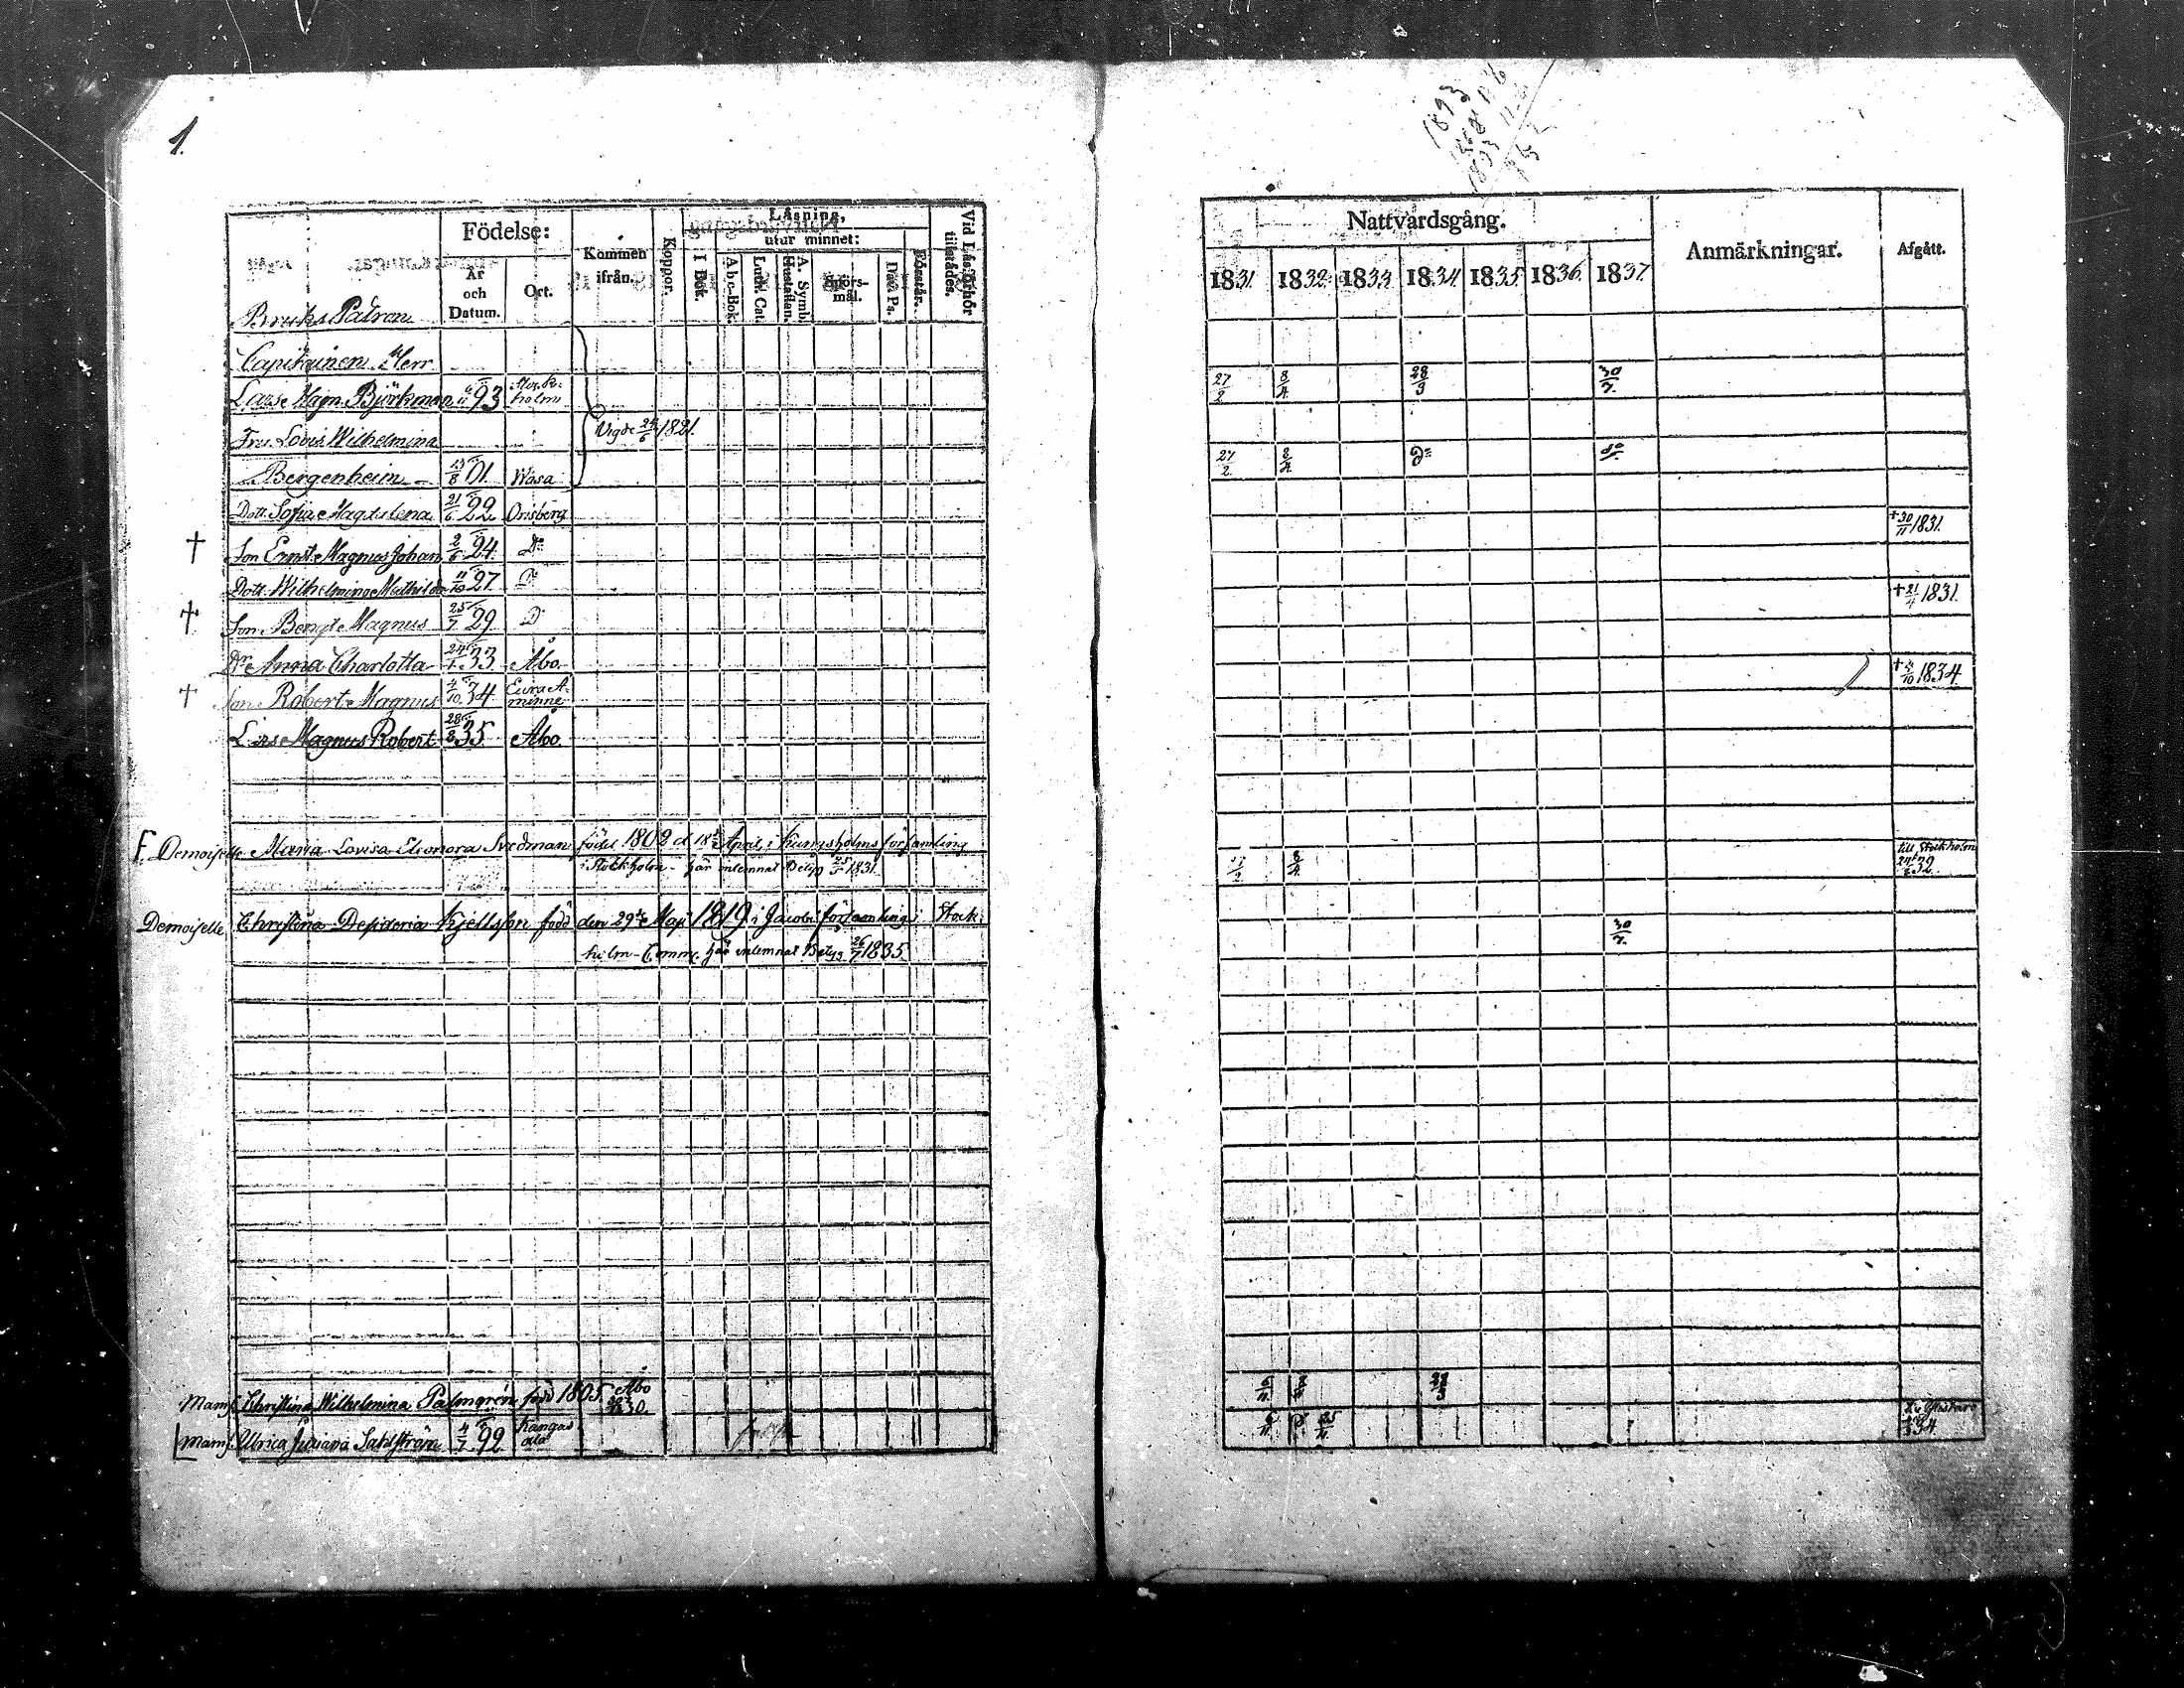 1.
Födelse:
År och Datum.
Ort.
Kommen ifrån.
Koppor.
Läsning,
utur minnet:
I Bok.
Abc-Bok.
Luth. Cat.
A. Symb. Hustaflan.
Spörsmål.
Dav. Ps.
Förstår.
Vid Läsförhör tillstädes.
Bruks Patron
Capitainen Herr
Lars Magn. Björkman 93 Stockholm
Vigde 24/6 1821.
Fru Lovis. Wilhelmina
Bergenheim 01. Wasa
Dott. Sofia Magdalena 21/6 22. Orisberg
† Son Ernst Magnus Johan 2/6 24. Do
Dott. Wilhelmina Mathilda 11/10 27. Do
† Son Bengt Magnus 25/7 29. Do
Dr Anna Charlotta 33. Åbo.
† Son Robert Magnus 4/10 34. Eura Åminne
Lars Magnus Robert 28/8 35. Åbo.
F. Demoiselle Maria Lovisa Eleonora Svedman född 1802 d. 18de April, i Kungsholms församling
i Stockholm - här inlemnat Betyg 1831.
Demoiselle Christina Desideria Kjellsson född den 29de Maji 1819, i Jacobs församling i Stockholm - har inlemnat Betyg 26/7 1835.
Mams. Christina Wilhelmina Palmgren född 1805. Åbo 30.
Mams. Ulrica Juliana Sahlström 4/7 92 Kangasala
1893
Nattvardsgång.
Anmärkningar.
Afgått.
1831. 1832. 1833. 1834. 1835. 1836. 1837.
27/2 8/4 28/9 30/7.
27/2 8/4 do do
† 30/11 1831.
† 21/4 1831.
† 4/10 1834.
8/4 till Stockholm 32.
30/7.
6/11
6/11 25/11 34.